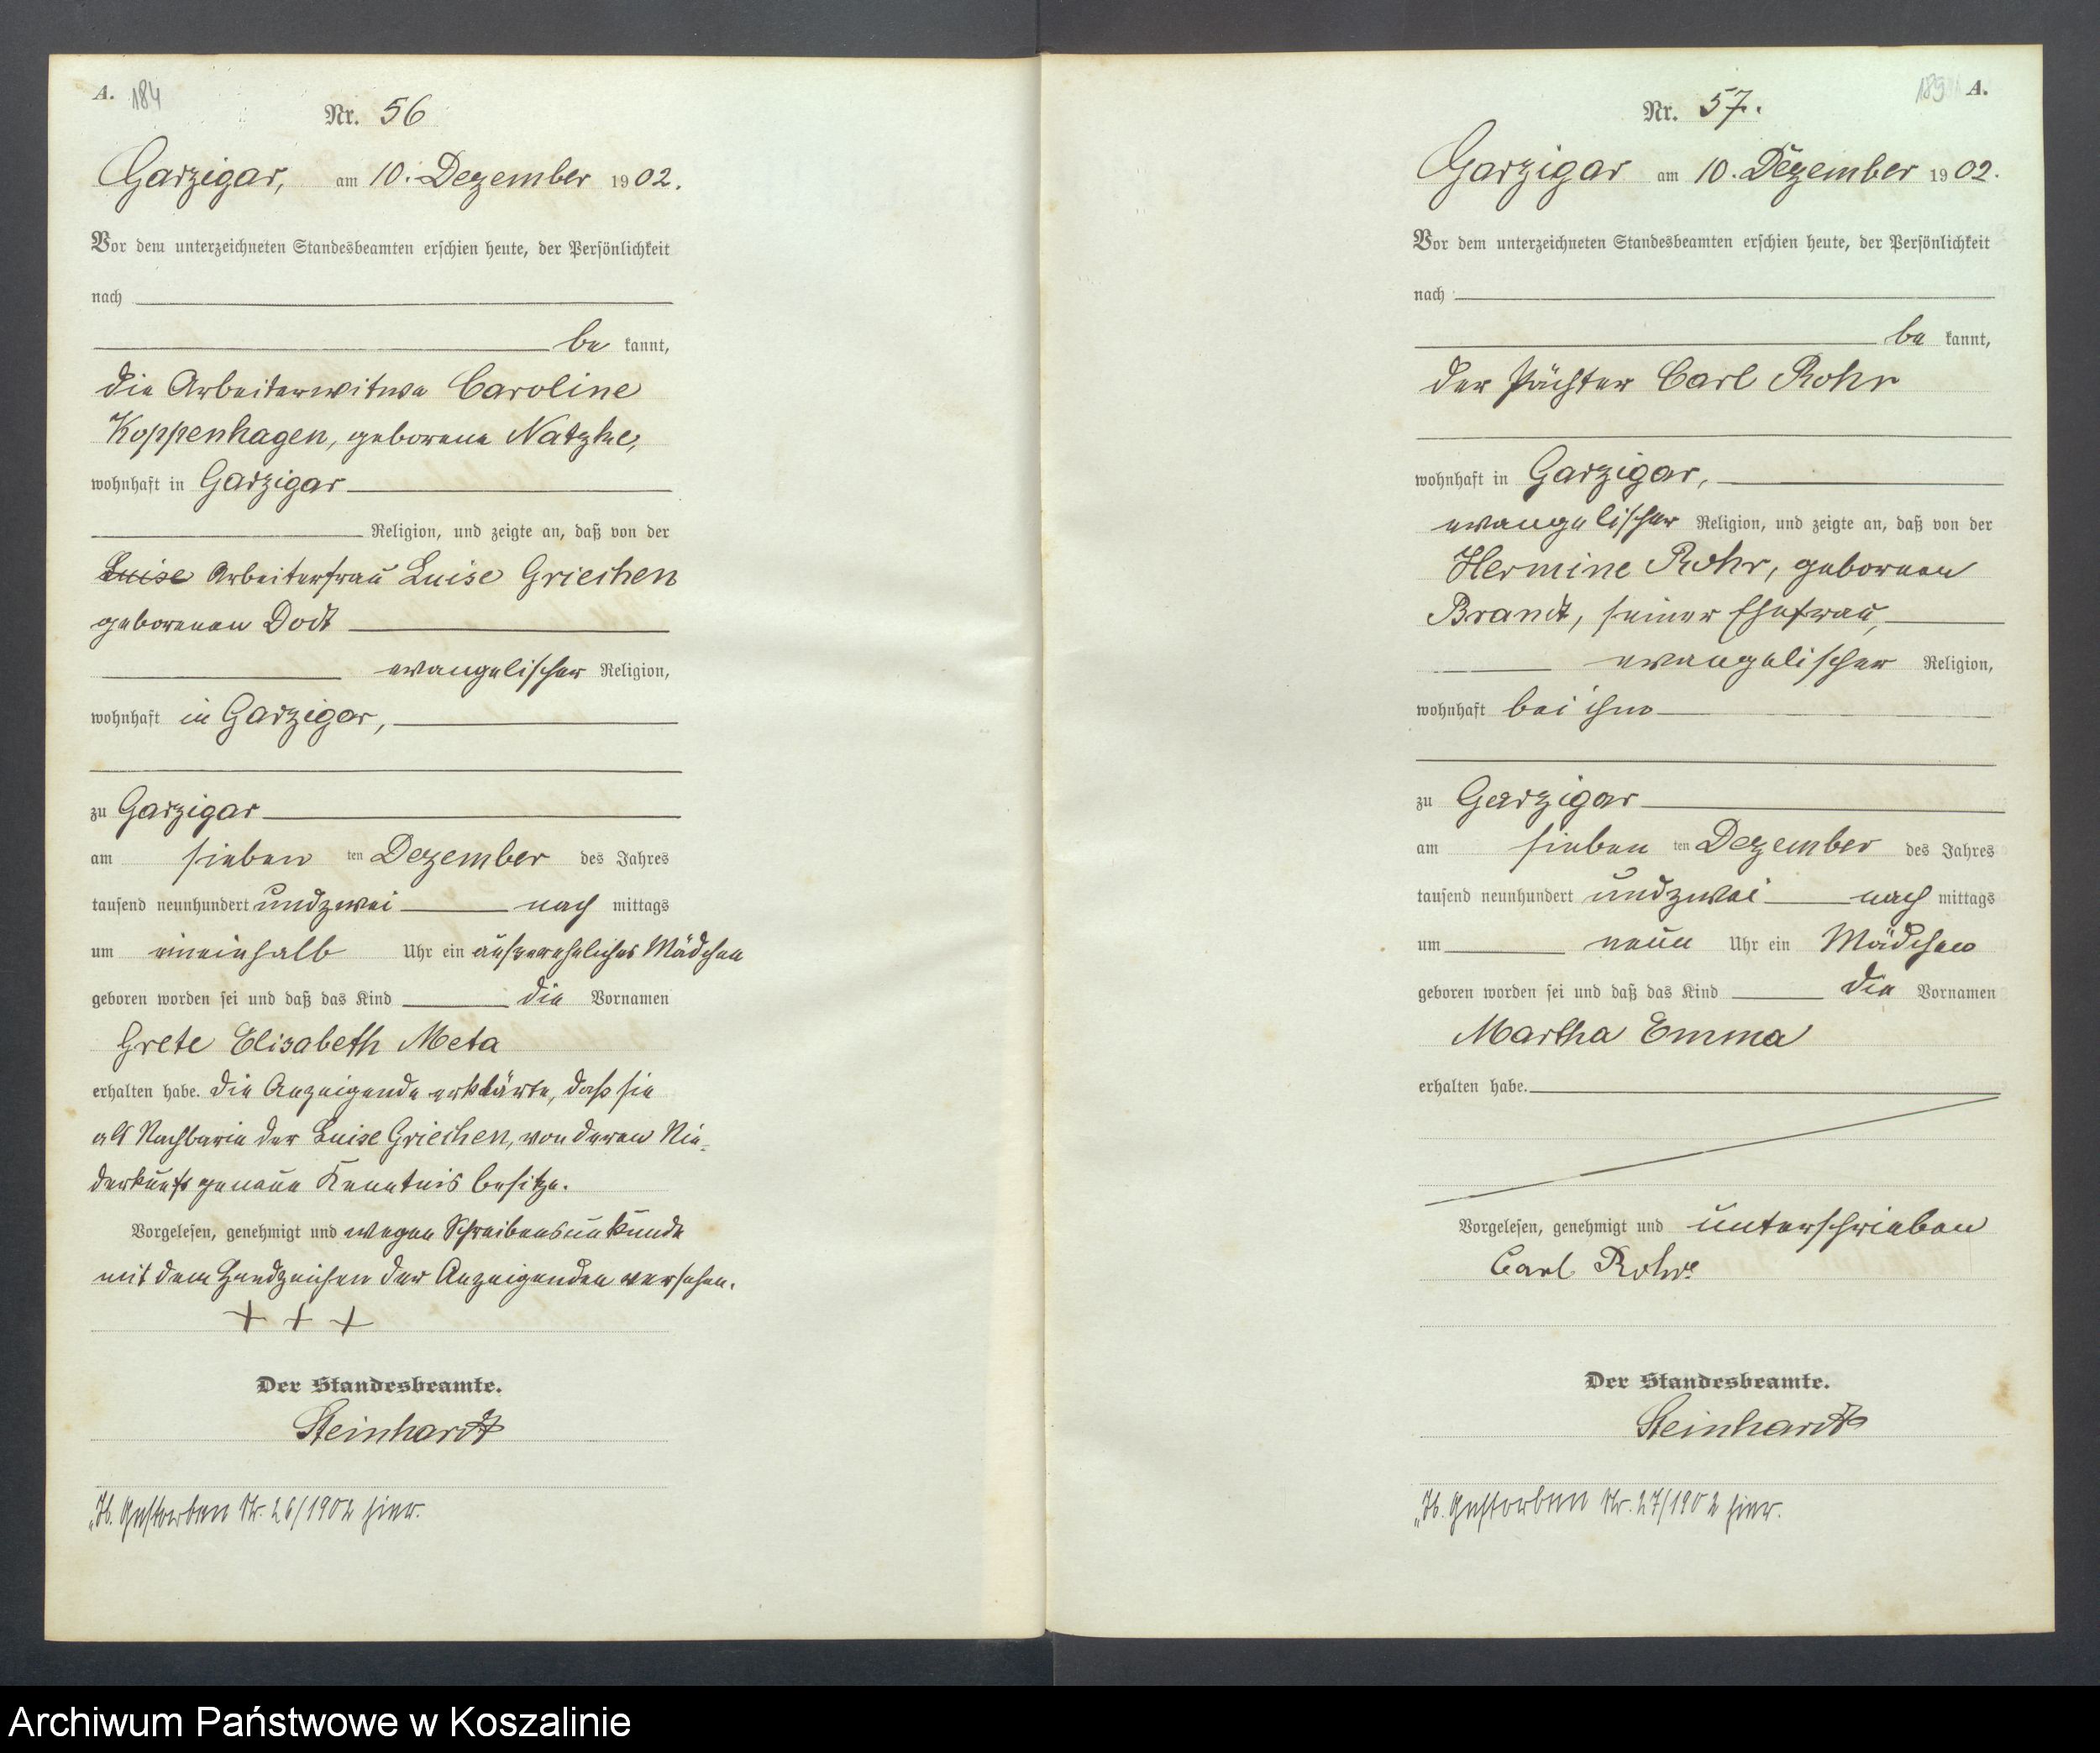 A. 184
Nr. 56
Garzigar, am 10. Dezember 1902.
Vor dem unterzeichneten Standesbeamten erschien heute, der Persönlichkeit
nach
be kannt,
die Arbeiterwitwe Caroline
Koppenhagen, geborene Natzke,
wohnhaft in Garzigar
Religion, und zeigte an, daß von der
Luise Arbeiterfrau Luise Griechen
geborenen Dodt
evangelischer Religion,
wohnhaft in Garzigar,
zu Garzigar
am sieben ten Dezember des Jahres
tausend neunhundert undzwei nach mittags
um eineinhalb Uhr ein außereheliches Mädchen
geboren worden sei und daß das Kind die Vornamen
Grete Elisabeth Meta
erhalten habe. Die Anzeigende erklärte, daß sie
als Nachbarin der Luise Griechen, von deren Nie-
derkunft genaue Kenntnis besitze.
Vorgelesen, genehmigt und wegen Schreibensunkunde
mit dem Handzeichen der Anzeigenden versehen.
+ + +
Der Standesbeamte.
Steinhardt
Gestorben Nr. 26/1902 hier.
189 A.
Nr. 57.
Garzigar am 10. Dezember 1902.
Vor dem unterzeichneten Standesbeamten erschien heute, der Persönlichkeit
nach
be kannt,
der Pächter Carl Rohr
wohnhaft in Garzigar,
evangelischer Religion, und zeigte an, daß von der
Hermine Rohr, geborenen
Brandt, seiner Ehefrau,
evangelischer Religion,
wohnhaft bei ihm
zu Garzigar
am sieben ten Dezember des Jahres
tausend neunhundert undzwei nach mittags
um neun Uhr ein Mädchen
geboren worden sei und daß das Kind die Vornamen
Martha Emma
erhalten habe.
Vorgelesen, genehmigt und unterschrieben
Carl Rohr
Der Standesbeamte.
Steinhardt
Gestorben Nr. 27/1902 hier.
Archiwum Państwowe w Koszalinie